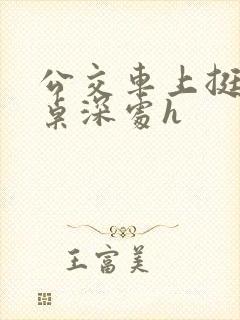 公交車上挺
桌深處h
王富美